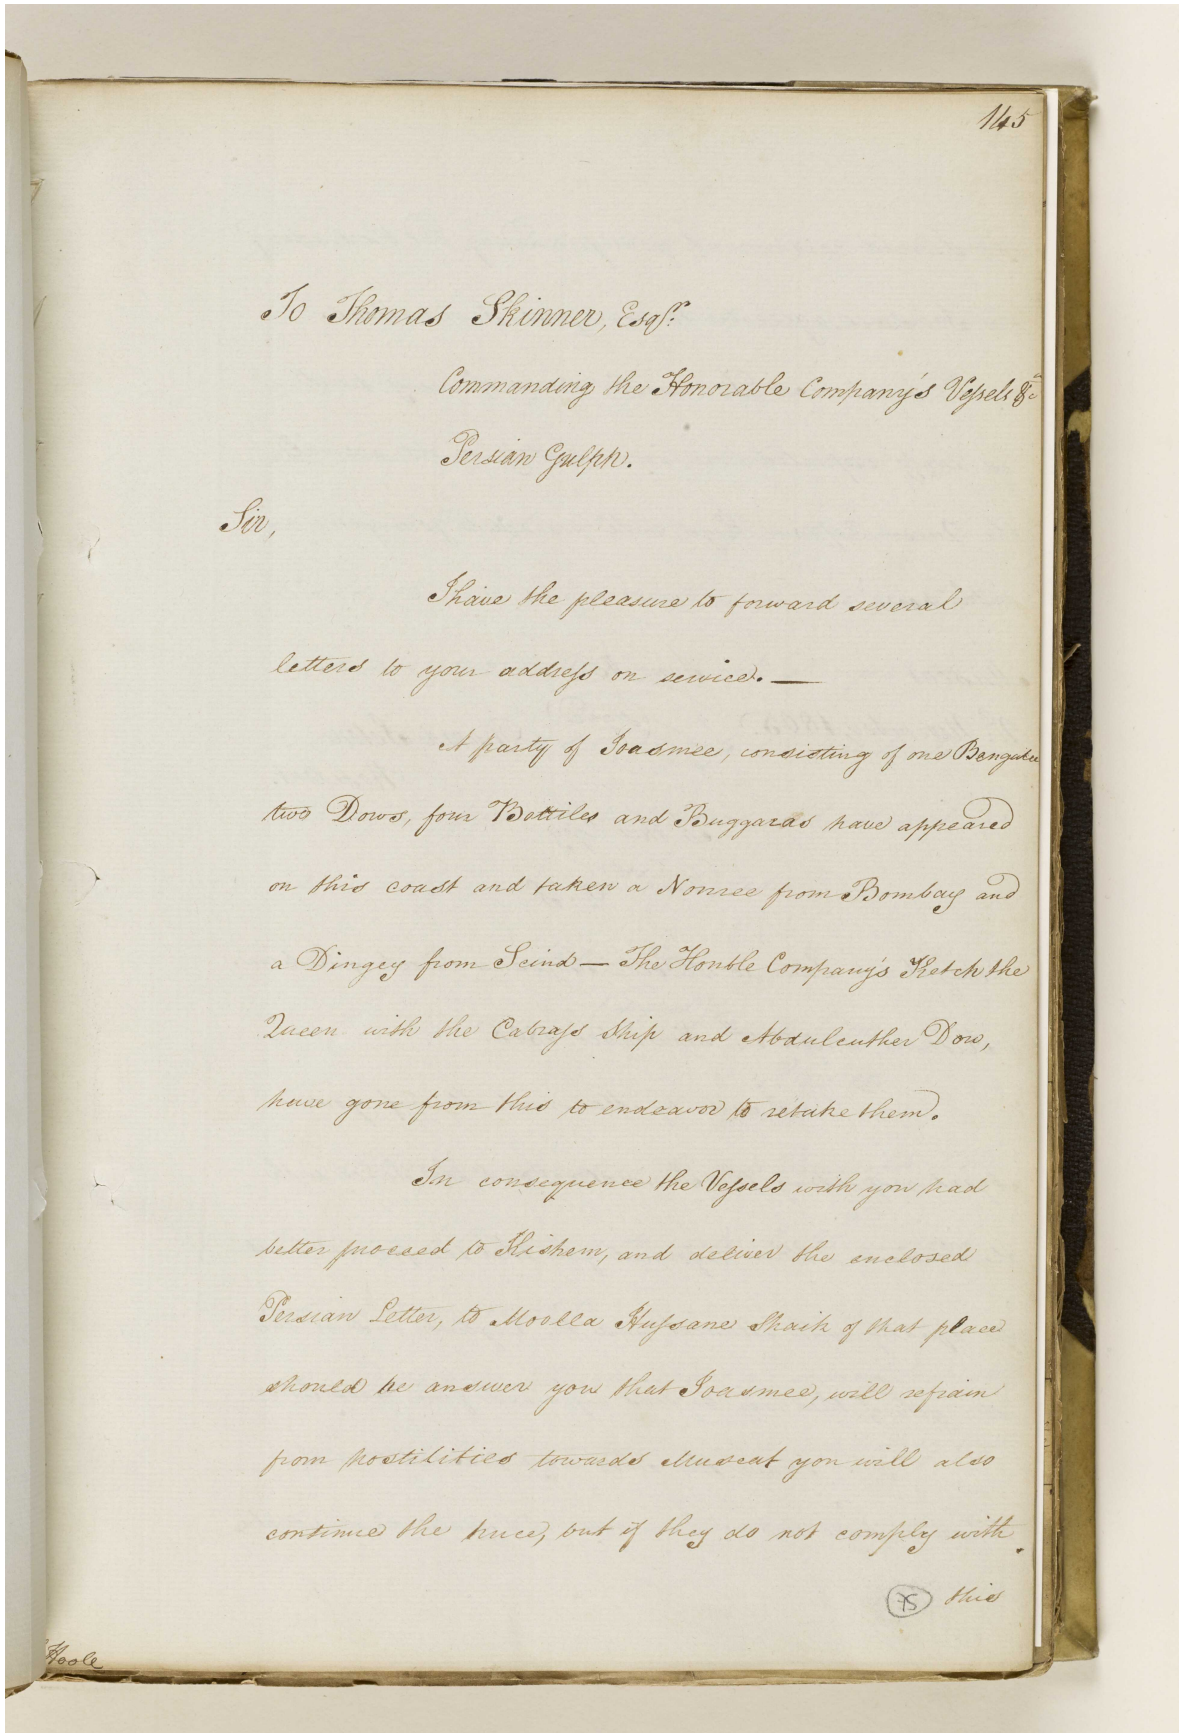 145
To Thomas Skinner, Esqr.
Commanding the Honorable Company's Vessels &ca
Persian Gulph.
Sir,
I have the pleasure to forward several
letters to your address on service. —
A party of Joasmee, consisting of one
two Dows, four Battiles and Buggaras have appeared
on this coast and taken a from Bombay and
a Dingey from Scind — The Honble Company's Ketch the
Queen with the Ship and Dow,
have gone from this to endeavor to retake them.
In consequence the Vessels with you had
better proceed to Kishem, and deliver the enclosed
Persian Letter, to Moolla Hussane Shaik of that place
should he answer you that Joasmee, will refrain
from hostilities towards Muscat you will also
continue the truce, but if they do not comply with
this
75
Hoole